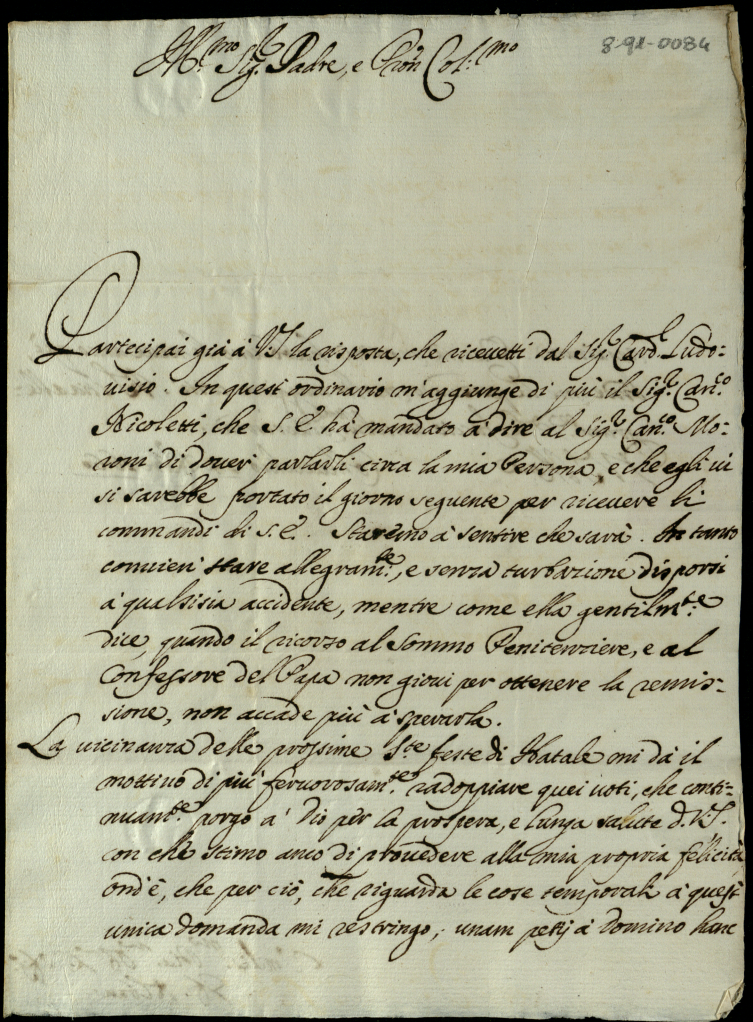 8-91-0084
Ill.mo Sig.r Padre, e P.ron Col.mo
Partecipai già à VS la risposta, che riceuetti dal Sig.r Card.l Ludo=
uisio. In quest ordinario m'aggiunge di più il Sig.r Can.co
Nicoletti, che S. E. hà mandato à dire al Sig.r Can.co Mo=
roni di douer parlarli circa la mia Persona, e che egli ui
si sarebbe portato il giorno seguente per riceuere li
commandi di S. E. Staremo à sentire che sarà. In tanto
conuien stare allegram.te, e senza turbazione disporsi
à qualsisia accidente, mentre come ella gentilm.te
dice, quando il ricorso al Sommo Penitenziere, e al
Confessore del Papa non gioui per ottenere la remis=
sione, non accade più à sperarla.
La uicinanza delle prossime S.te feste di Natale mi dà il
mottiuo di più feruorosam.te radoppiare quei uoti, che conti=
nuam.te porgo à Dio per la prospera, e lunga salute d. V.S.
con che stimo anco di prouedere alla mia propria fellicità
ond'è, che per ciò, che riguarda le cose temporali à quest
unica domanda mi restringo, unam petij à Domino hanc